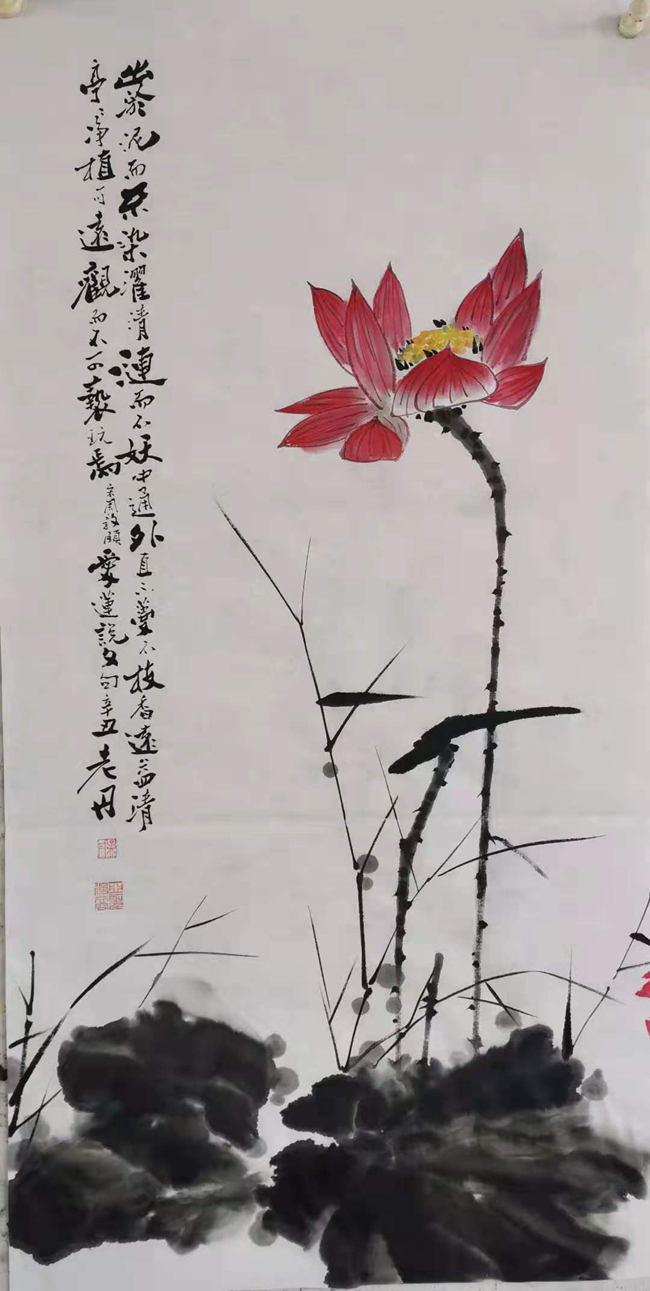 出於泥而不染濯清漣而不妖中通外直不蔓不枝香遠益清
亭〻净植可遠觀而不可褻玩焉宋周敦頤愛蓮說文句辛丑老丹